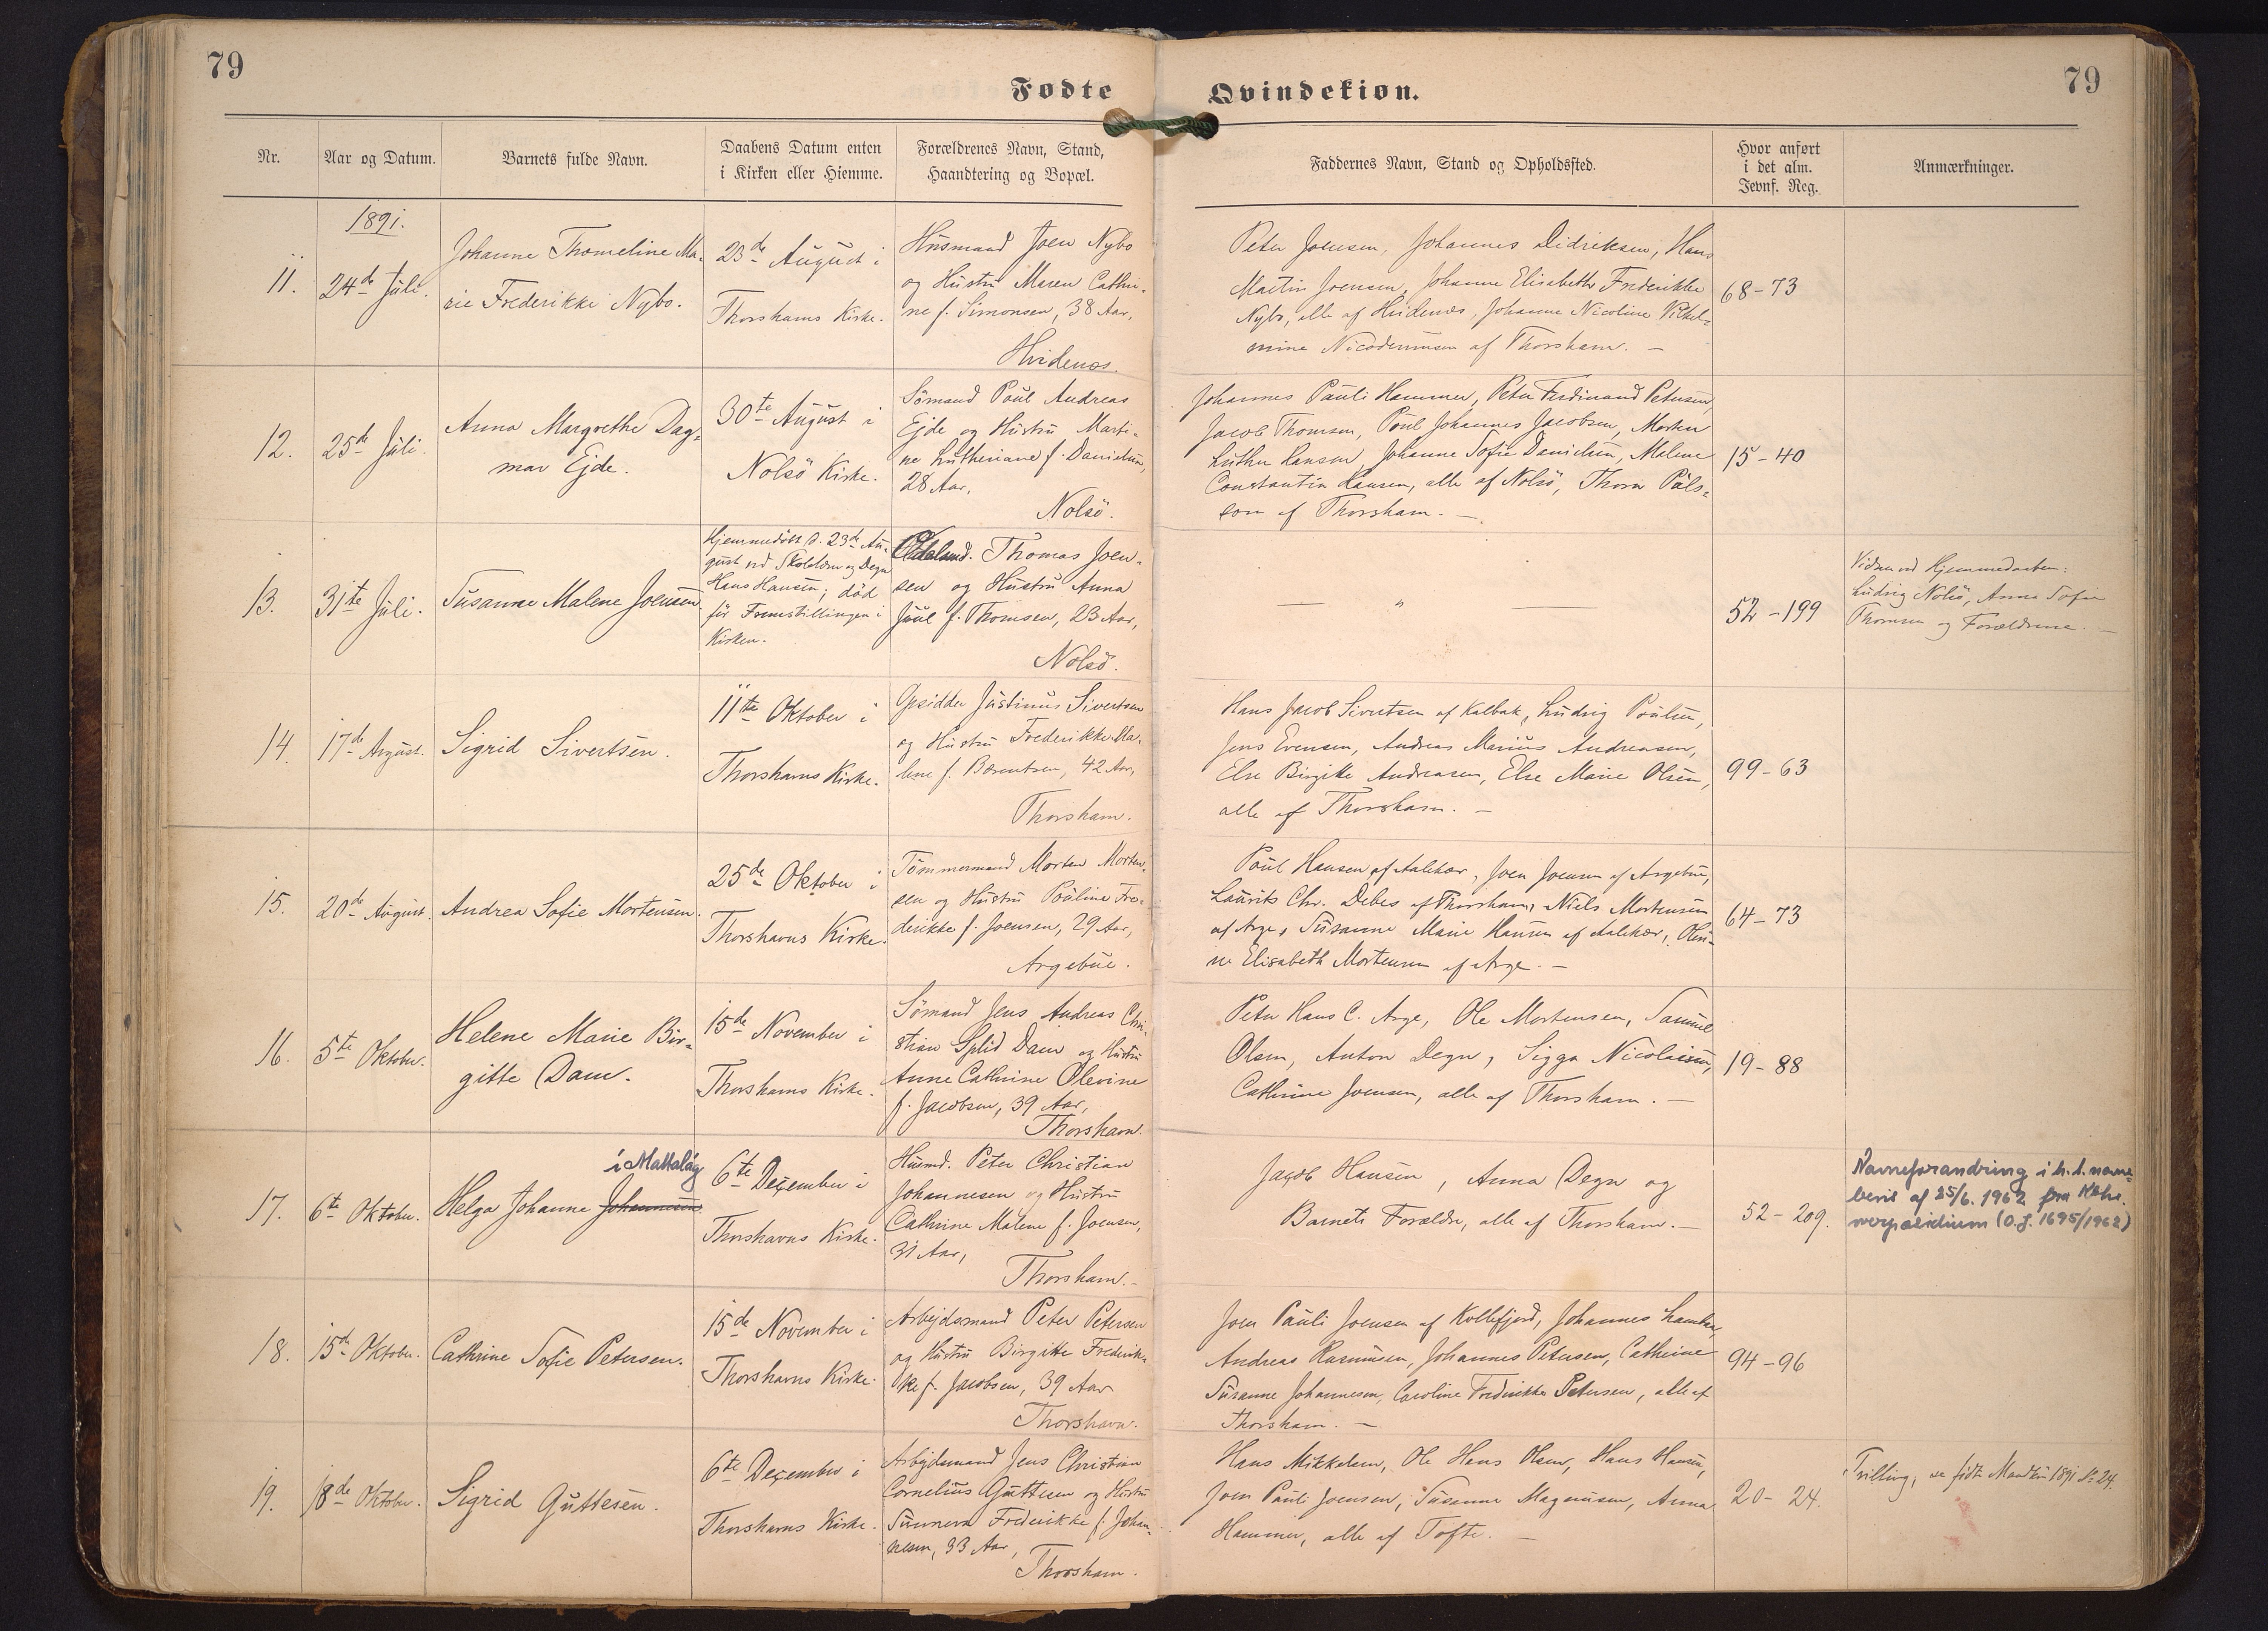 79
79
Fødte
Qvindekiøn.
Nr.
Aar og Datum.
Barnets fulde Navn.
Daabens Datum enten
i Kirken eller Hiemme.
Forældrenes Navn, Stand,
Haandtering og Bopæl.
Faddernes Navn, Stand og Opholdssted.
Hvor anført
i det alm.
Jevnf. Reg.
Anmærkninger.
1891.
11.
24de Juli.
Johanne Thomeline Ma-
rie Frederikke Nybo.
23de August i
Thorshavns Kirke.
Husmand Joen Nybo
og Hustru Maren Cathri-
ne f. Simonsen, 38 Aar,
Hvidenæs.
Peter Joensen, Johannes Didriksen, Hans
Martin Joensen, Johanne Elisabeth Frederikke
Nybo, alle af Hvidenæs, Johanne Nicoline Vilhel-
mine Nicodemusen af Thorshavn. —
68-73
12.
25de Juli.
Anna Margrethe Dag-
mar Ejde.
30te August i
Nolsö Kirke.
Sömand Poul Andreas
Ejde og Hustru Marti-
ne Lutheriane f. Danielsen,
28 Aar,
Nolsö.
Johannes Pauli Hammer, Peter Ferdinand Petersen,
Jacob Thomsen, Poul Johannes Jacobsen, Morten
Luther Hansen, Johanne Sofie Danielsen, Malene
Constantin Hansen, alle af Nolsö, Thora Påls-
son af Thorshavn. —
15-40
13.
31te Juli.
Susanne Malene Joensen.
Hjemmedöbt d. 23de Au-
gust ved Skolelærer og Degn
Hans Hansen; död
för Fremstillingen i
Kirken.
Thomas Joen-
sen og Hustru Anna
Juul f. Thomsen, 23 Aar,
Nolsö.
— " —
52-199
Vidner ved Hjemmedaaben:
Ludvig Nolsö, Anna Sofie
Thomsen og Forældrene. —
14.
17de August.
Sigrid Sivertsen.
11te Oktober i
Thorshavns Kirke.
Opsidder Justinus Sivertsen
og Hustru Frederikke Ma-
lene f. Bærentsen, 42 Aar,
Thorshavn.
Hans Jacob Sivertsen af Kalbak, Ludvig Poulsen,
Jens Evensen, Andreas Marius Andreasen,
Else Birgitte Andreasen, Else Marie Olsen,
alle af Thorshavn. —
99-63
15.
20de August.
Andrea Sofie Mortensen.
25de Oktober i
Thorshavns Kirke.
Tömmermand Morten Morten-
sen og Hustru Pouline Fre-
derikke f. Joensen, 29 Aar,
Argebue.
Poul Hansen af Aalekær, Joen Joensen af Argebue,
Laurits Chr. Debes af Thorshavn, Niels Mortensen
af Arge, Susanne Marie Hansen af Aalekær, Olevi-
ne Elisabeth Mortensen af Arge. —
64-73
16.
5te Oktober.
Helene Marie Bir-
gitte Dam.
15de November i
Thorshavns Kirke.
Sömand Jens Andreas Chri-
stian Splid Dam og Hustru
Anne Cathrine Olevine
f. Jacobsen, 39 Aar,
Thorshavn.
Peter Hans C. Arge, Ole Mortensen, Samuel
Olsen, Anton Degn, Sigga Nicolaisen,
Cathrine Joensen, alle af Thorshavn. —
19-88
17.
6te Oktober.
í Mattalág
Helga Johanne Johannesen.
6te December i
Thorshavns Kirke.
Husmd. Peter Christian
Johannesen og Hustru
Cathrine Malene f. Joensen,
31 Aar,
Thorshavn.-
Jacob Hansen, Anna Degn og
Barnets Forældre, alle af Thorshavn. —
52-209.
Navneforandring i h. t. navne-
bevis af 25/6. 1962 fra Kbhs.
overpræsidium (O.J. 1695/1962)
18.
15de Oktober.
Cathrine Sofie Petersen.
15de November i
Thorshavns Kirke.
Arbejdsmand Peter Petersen
og Hustru Birgitte Frederik-
ke f. Jacobsen, 39 Aar
Thorshavn.
Joen Pauli Joensen af Kollefjord, Johannes
Andreas Rasmussen, Johannes Petersen, Cathrine
Susanne Johannesen, Caroline Frederikke Petersen, alle af
Thorshavn. —
94-96
19.
18de Oktober.
Sigrid Guttesen.
6te December i
Thorshavns Kirke.
Arbejdsmand Jens Christian
Cornelius Guttesen og Hustru
Sunneva Frederikke f. Johan-
nesen, 33 Aar,
Thorshavn.
Hans Mikkelsen, Ole Hans Olsen, Hans Hansen,
Joen Pauli Joensen, Susanne Magnusen, Anna
Hammer, alle af Tofte. —
20-24.
Tvilling, se födte Mandkön 1891 No 24.